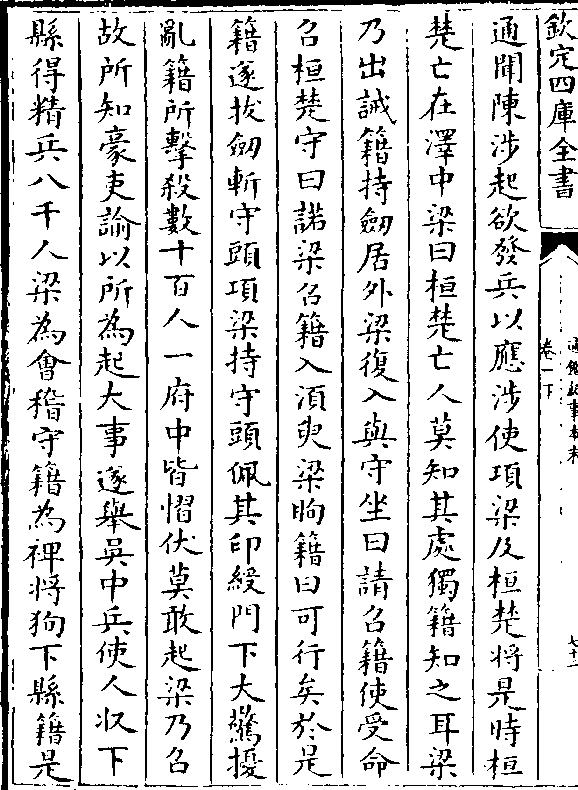 欽定四庫全書
通鑑紀事本末
卷一下
七十一
通聞陳涉起欲發兵以應涉使項梁及桓楚將是時桓
楚亡在澤中梁曰桓楚亡人莫知其處獨籍知之耳梁
乃出誡籍持劒居外梁復入與守坐曰請召籍使受命
召桓楚守曰諾梁召籍入湏臾梁眴籍曰可行矣於是
籍遂拔劒斬守頭項梁持守頭佩其印綬門下大驚擾
亂籍所擊殺數十百人一府中皆慴伏莫敢起梁乃召
故所知豪吏諭以所為起大事遂舉吳中兵使人収下
縣得精兵八千人梁為會稽守籍為裨將狥下縣籍是